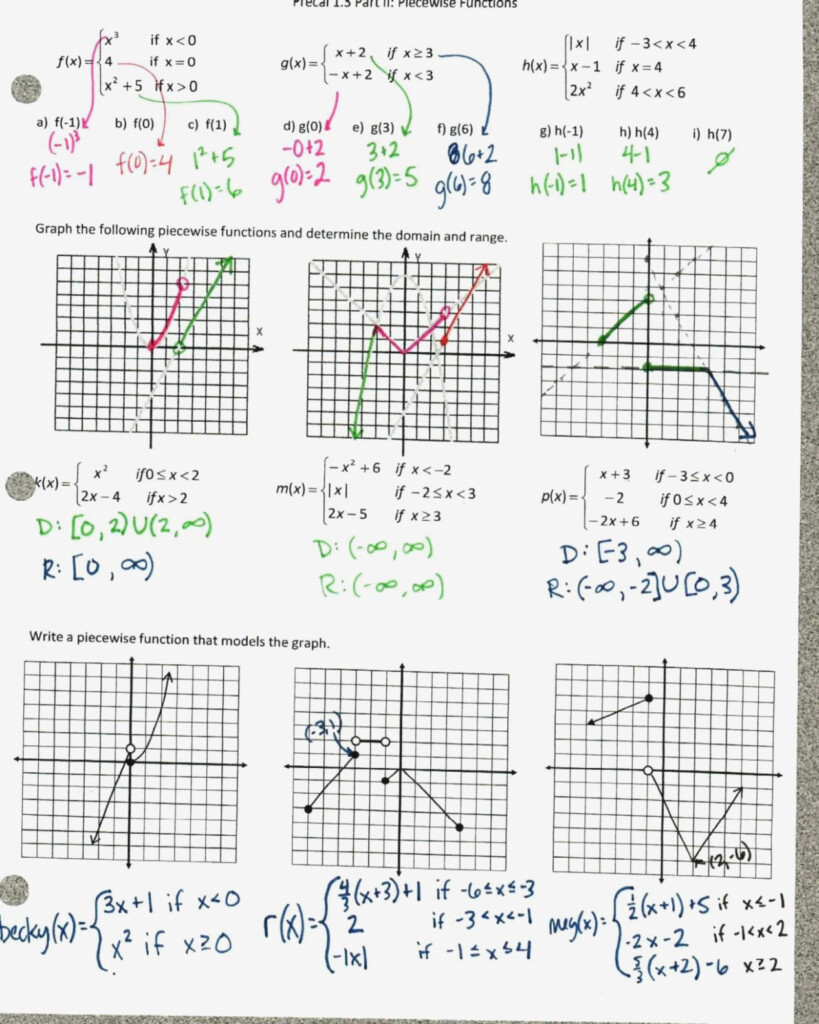 Precal 1.3 Part II: Piecewise Functions
f(x) = { x³ if x < 0
4 if x = 0
x² + 5 if x > 0
g(x) = { x + 2 if x ≥ 3
−x + 2 if x < 3
h(x) = { |x| if −3 < x < 4
x − 1 if x = 4
2x² if 4 < x < 6
a) f(-1) b) f(0) c) f(1) d) g(0) e) g(3) f) g(6) g) h(-1) h) h(4) i) h(7)
(-1)³ 1²+5 -0+2 3+2 6+2 |-1| 4-1 ∅
f(-1)=-1 f(0)=4 f(1)=6 g(0)=2 g(3)=5 g(6)=8 h(-1)=1 h(4)=3
Graph the following piecewise functions and determine the domain and range.
Y
X
Y
X
k(x) = { x² if 0 ≤ x < 2
2x − 4 if x > 2
D: [0,2)∪(2,∞)
R: [0,∞)
m(x) = { −x² + 6 if x < −2
|x| if −2 ≤ x < 3
2x − 5 if x ≥ 3
D: (-∞,∞)
R: (-∞,∞)
p(x) = { x + 3 if −3 ≤ x < 0
−2 if 0 ≤ x < 4
−2x + 6 if x ≥ 4
D: [-3,∞)
R: (-∞,-2]∪[0,3)
Write a piecewise function that models the graph.
(-3,1)
(2,-6)
becky(x)= { 3x+1 if x<0
x² if x≥0
r(x)= { 4/3(x+3)+1 if -6≤x≤-3
2 if -3<x<-1
-|x| if -1≤x≤4
meg(x)= { 1/2(x+1)+5 if x≤-1
-2x-2 if -1<x<2
5/3(x+2)-6 x≥2